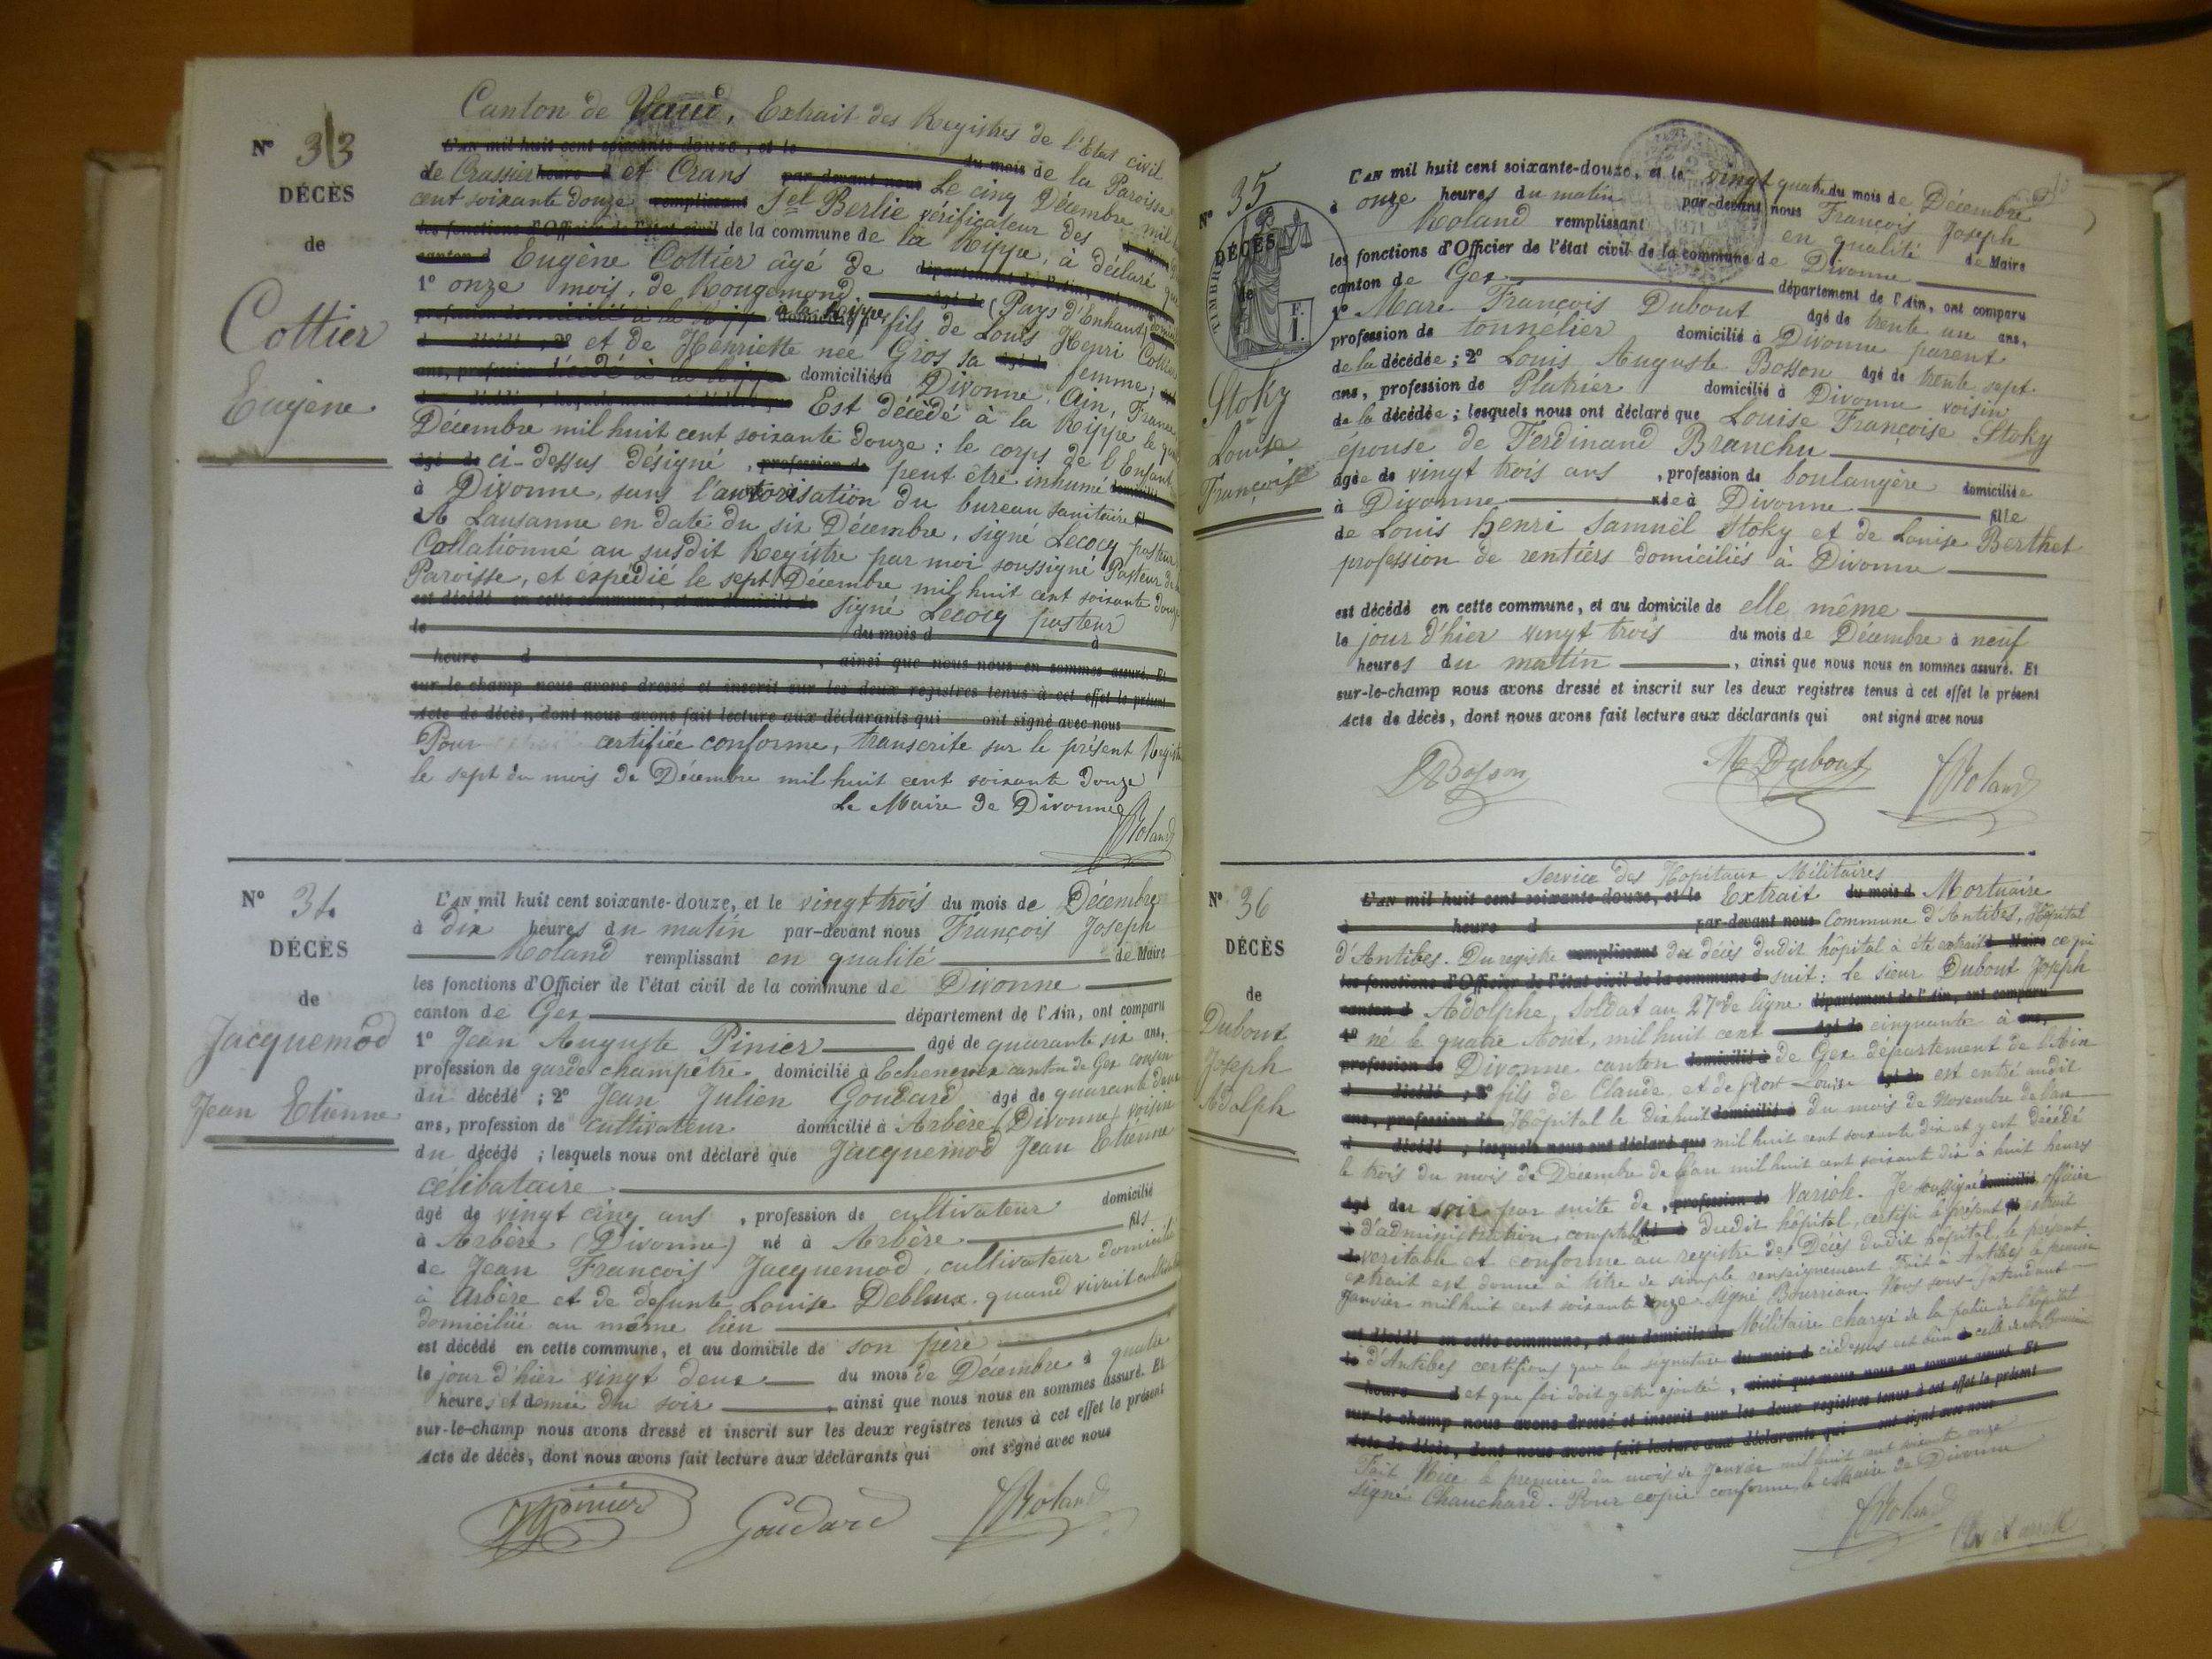 N° 33
DÉCÈS
de
Cottier
Eugène
Canton de Vaud, Extrait des Registres de l'État civil
L'AN mil huit cent soixante-douze, et le du mois de la Paroisse
de Crassier et Crans par-devant nous Le cinq Décembre mil
cent soixante douze remplissant Sel Berlie vérificateur des
les fonctions d'Officier de l'état civil de la commune de la Rippe, a déclaré que
canton d Eugène Cottier âgé de département de l'Ain, ont comparu
1° onze mois, de Rougemond (Pays d'Enhaut)
à la Rippe fils de Louis Henri Cottier
d décédé ; 2° et de Henriette née Gros sa âgé de femme,
ans, profession domiciliés à Divonne, Ain, France
Est décédé à la Rippe le
Décembre mil huit cent soixante douze : le corps de l'Enfant
âgé de ci-dessus désigné, profession de peut être inhumé
à Divonne, sans l'autorisation du bureau sanitaire
A Lausanne en date du six Décembre, signé Lecocq pasteur
Collationné au susdit Registre par moi soussigné Pasteur de
Paroisse, et expédié le sept Décembre mil huit cent soixante douze
est décédé en cette commune, et au domicile de signé Lecocq pasteur
le du mois d à
heure d , ainsi que nous nous en sommes assuré. Et
sur-le-champ nous avons dressé et inscrit sur les deux registres tenus à cet effet le présent
Acte de décès, dont nous avons fait lecture aux déclarants qui ont signé avec nous
Pour certifiée conforme, transcrite sur le présent Registre
le sept du mois de Décembre mil huit cent soixante douze
Le Maire de Divonne
Roland
N° 34
DÉCÈS
de
Jacquemod
Jean Etienne
L'AN mil huit cent soixante-douze, et le vingt trois du mois de Décembre
à dix heures du matin par-devant nous François Joseph
Roland remplissant en qualité de Maire
les fonctions d'Officier de l'état civil de la commune de Divonne
canton de Gex département de l'Ain, ont comparu
1° Jean Auguste Pinier âgé de quarante six ans,
profession de garde champêtre domicilié à Echenevex canton de Gex cousin
du décédé ; 2° Jean Julien Goudard âgé de quarante deux
ans, profession de cultivateur domicilié à Arbère (Divonne) voisin
du décédé ; lesquels nous ont déclaré que Jacquemod Jean Etienne
célibataire
âgé de vingt cinq ans , profession de cultivateur domicilié
à Arbère (Divonne) né à Arbère fils
de Jean François Jacquemod, cultivateur domicilié
à Arbère et de defunte Louise quand vivait
domiciliée au même lieu
est décédé en cette commune, et au domicile de son père
le jour d'hier vingt deux du mois de Décembre à quatre
heures et demie du soir , ainsi que nous nous en sommes assuré. Et
sur-le-champ nous avons dressé et inscrit sur les deux registres tenus à cet effet le présent
Acte de décès, dont nous avons fait lecture aux déclarants qui ont signé avec nous
Pinier Goudard Roland
N° 35
DÉCÈS
de
TIMBRE
F.
1.
1871
Stoky
Louise
Françoise
L'AN mil huit cent soixante-douze, et le vingt quatre du mois de Décembre
à onze heures du matin par-devant nous François Joseph
Roland remplissant en qualité de Maire
les fonctions d'Officier de l'état civil de la commune de Divonne
canton de Gex département de l'Ain, ont comparu
1° Marc François Dubout âgé de trente un ans,
profession de tonnelier domicilié à Divonne parent
de la décédée ; 2° Louis Auguste Bosson âgé de trente sept
ans, profession de Platrier domicilié à Divonne voisin
de la décédée ; lesquels nous ont déclaré que Louise Françoise Stoky
épouse de Ferdinand Branchu
âgée de vingt trois ans , profession de boulangère domiciliée
à Divonne née à Divonne fille
de Louis Henri Samuël Stoky et de Louise Berthet
profession de rentiers domiciliés à Divonne
est décédé en cette commune, et au domicile de elle même
le jour d'hier vingt trois du mois de Décembre à neuf
heures du matin , ainsi que nous nous en sommes assuré. Et
sur-le-champ nous avons dressé et inscrit sur les deux registres tenus à cet effet le présent
Acte de décès, dont nous avons fait lecture aux déclarants qui ont signé avec nous
Bosson M Dubout Roland
N° 36
DÉCÈS
de
Dubout
Joseph
Adolph
Service des Hopitaux Militaires
L'AN mil huit cent soixante-douze, et le Extrait du mois d Mortuaire
à heure d par-devant nous Commune d'Antibes, Hopital
d'Antibes. Du registre remplissant des décès dudit hôpital a été extrait Maire ce qui
les fonctions d'Officier de l'état civil de la commune d suit : Le sieur Dubout Joseph
canton d Adolphe, Soldat au 27e de ligne département de l'Ain, ont comparu
1° né le quatre Août, mil huit cent âgé de cinquante à ans,
profession de Divonne canton domicilié à de Gex département de l'Ain
d décédé ; 2° fils de Claude et de Louise âgé de est entré audit
ans, profession de Hôpital le dix huit domicilié à du mois de Novembre de l'an
d décédé ; lesquels nous ont déclaré que mil huit cent soixante dix et y est décédé
le trois du mois de Décembre de l'an mil huit cent soixante dix à huit heures
âgé de du soir par suite de , profession de Variole. Je soussigné domicilié officier
à d'administration comptable dudit hôpital, certifie le présent extrait
véritable et conforme au registre des Décès dudit hôpital, le présent
extrait est donné à titre de simple renseignement. Fait à Antibes le premier
janvier mil huit cent soixante onze. Signé Bourrian. Nous sous-Intendant
est décédé en cette commune, et au domicile de Militaire chargé de la police de l'hôpital
le d'Antibes certifions que la signature du mois d cidessus est bien celle de
heure d et que foi doit y être ajoutée, ainsi que nous nous en sommes assuré. Et
sur-le-champ nous avons dressé et inscrit sur les deux registres tenus à cet effet le présent
Acte de décès, dont nous avons fait lecture aux déclarants qui ont signé avec nous
Fait Nice le premier du mois de Janvier mil huit cent soixante onze
signé Chauchard. Pour copie conforme, le Maire de Divonne
Roland
Clos et arrêté